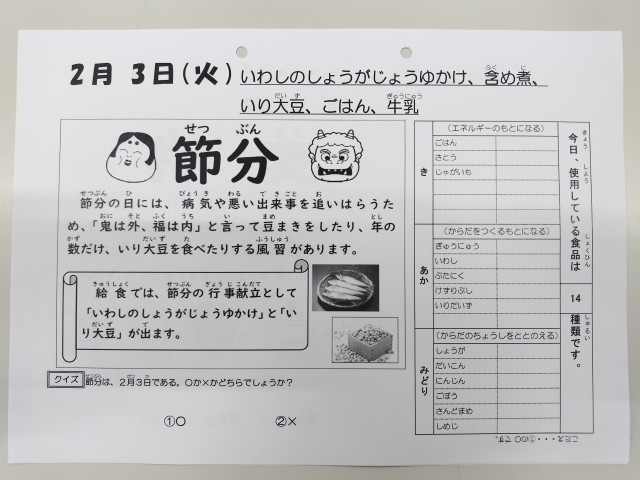 2月 3日(火) いわしのしょうがじょうゆかけ、含め煮、
いり大豆、ごはん、牛乳
節分
節分の日には、病気や悪い出来事を追いはらうた
め、「鬼は外、福は内」と言って豆まきをしたり、年の
数だけ、いり大豆を食べたりする風習があります。
給食では、節分の行事献立として
「いわしのしょうがじょうゆかけ」と「い
り大豆」が出ます。
クイズ 節分は、2月3日である。○か×かどちらでしょうか？
①○ ②×
今日、使用している食品は 14 種類です。
き
(エネルギーのもとになる)
ごはん
さとう
じゃがいも
あか
(からだをつくるもとになる)
ぎゅうにゅう
いわし
ぶたにく
けずりぶし
いりだいず
みどり
(からだのちょうしをととのえる)
しょうが
だいこん
にんじん
ごぼう
さんどまめ
しめじ
こたえ・・・①の○です。